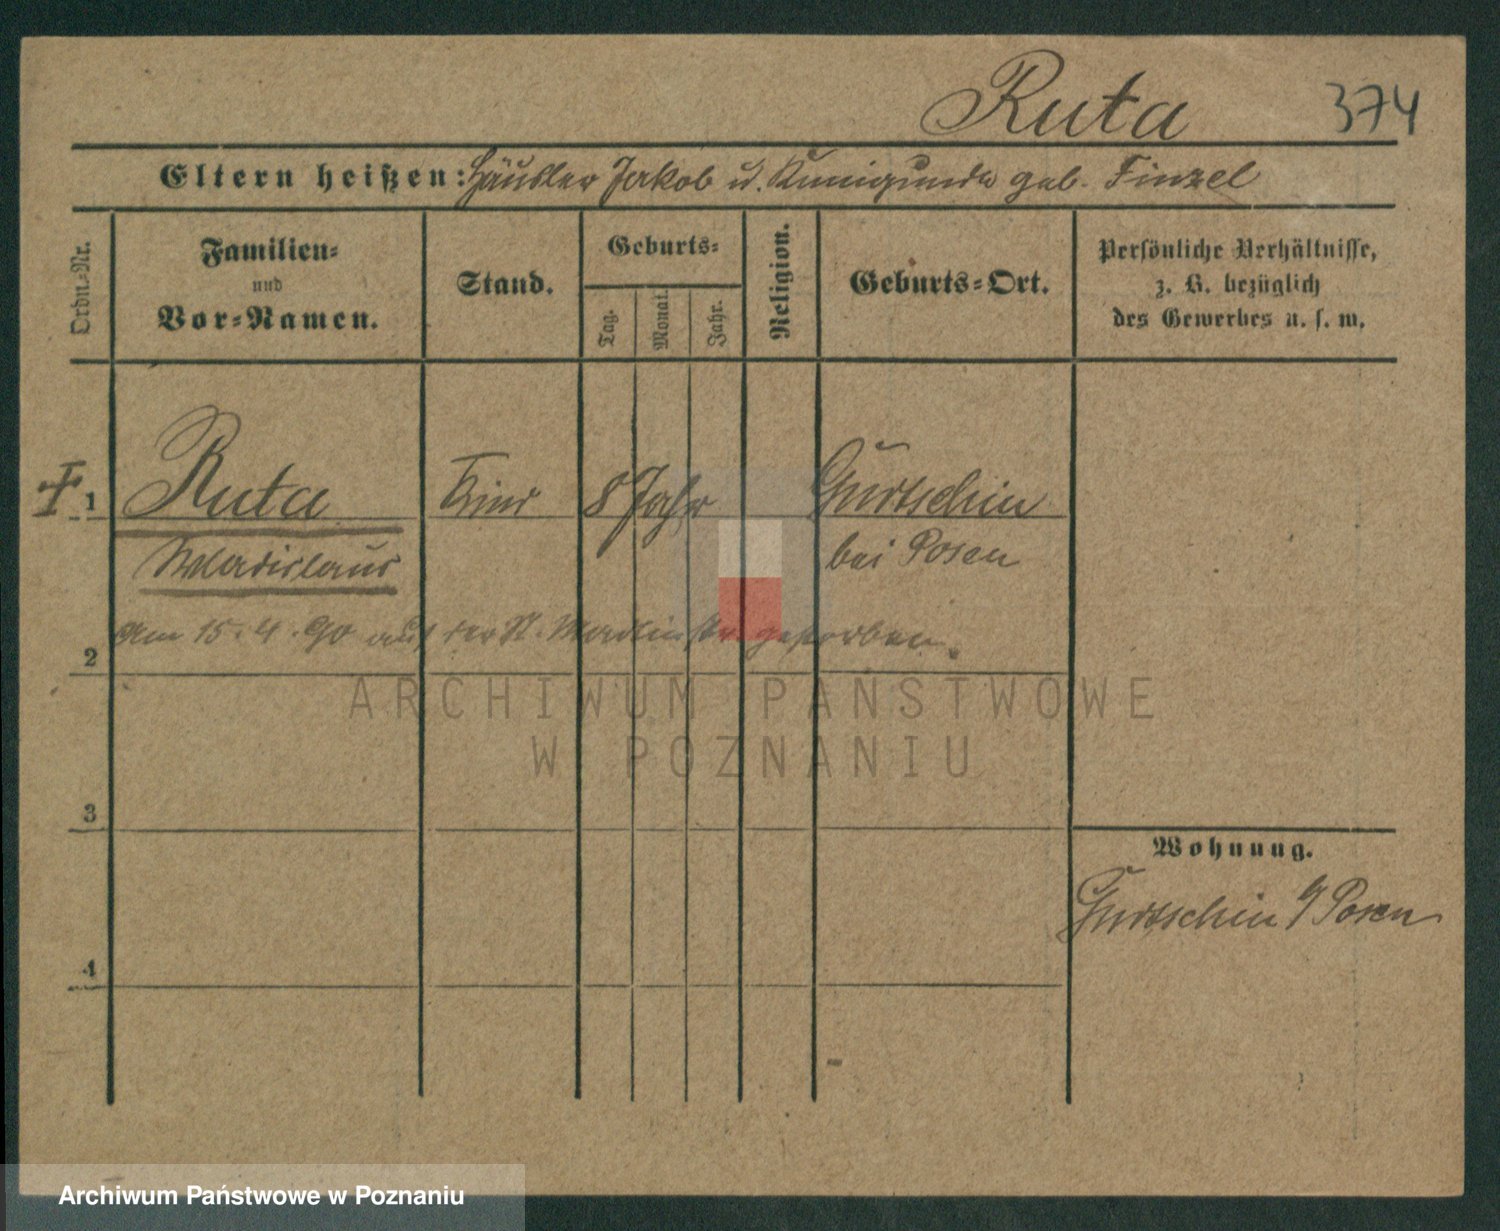 Ruta 374
Eltern heißen: Häusler Jakob u. Kunigunda geb. Finzel
Ordn.-Nr.
Familien-
und
Vor-Namen.
Stand.
Geburts-
Tag.
Monat.
Jahr.
Religion.
Geburts-Ort.
Persönliche Verhältnisse,
z. B. bezüglich
des Gewerbes u. s. w.
1 Ruta Kind 8 Jahr Gurtschin
Wladislaus bei Posen
am 15.4.90 auf der St. Martinstr. gestorben.
2
ARCHIWUM PAŃSTWOWE
W POZNANIU
3
Wohnung.
Gurtschin b/Posen
4
Archiwum Państwowe w Poznaniu